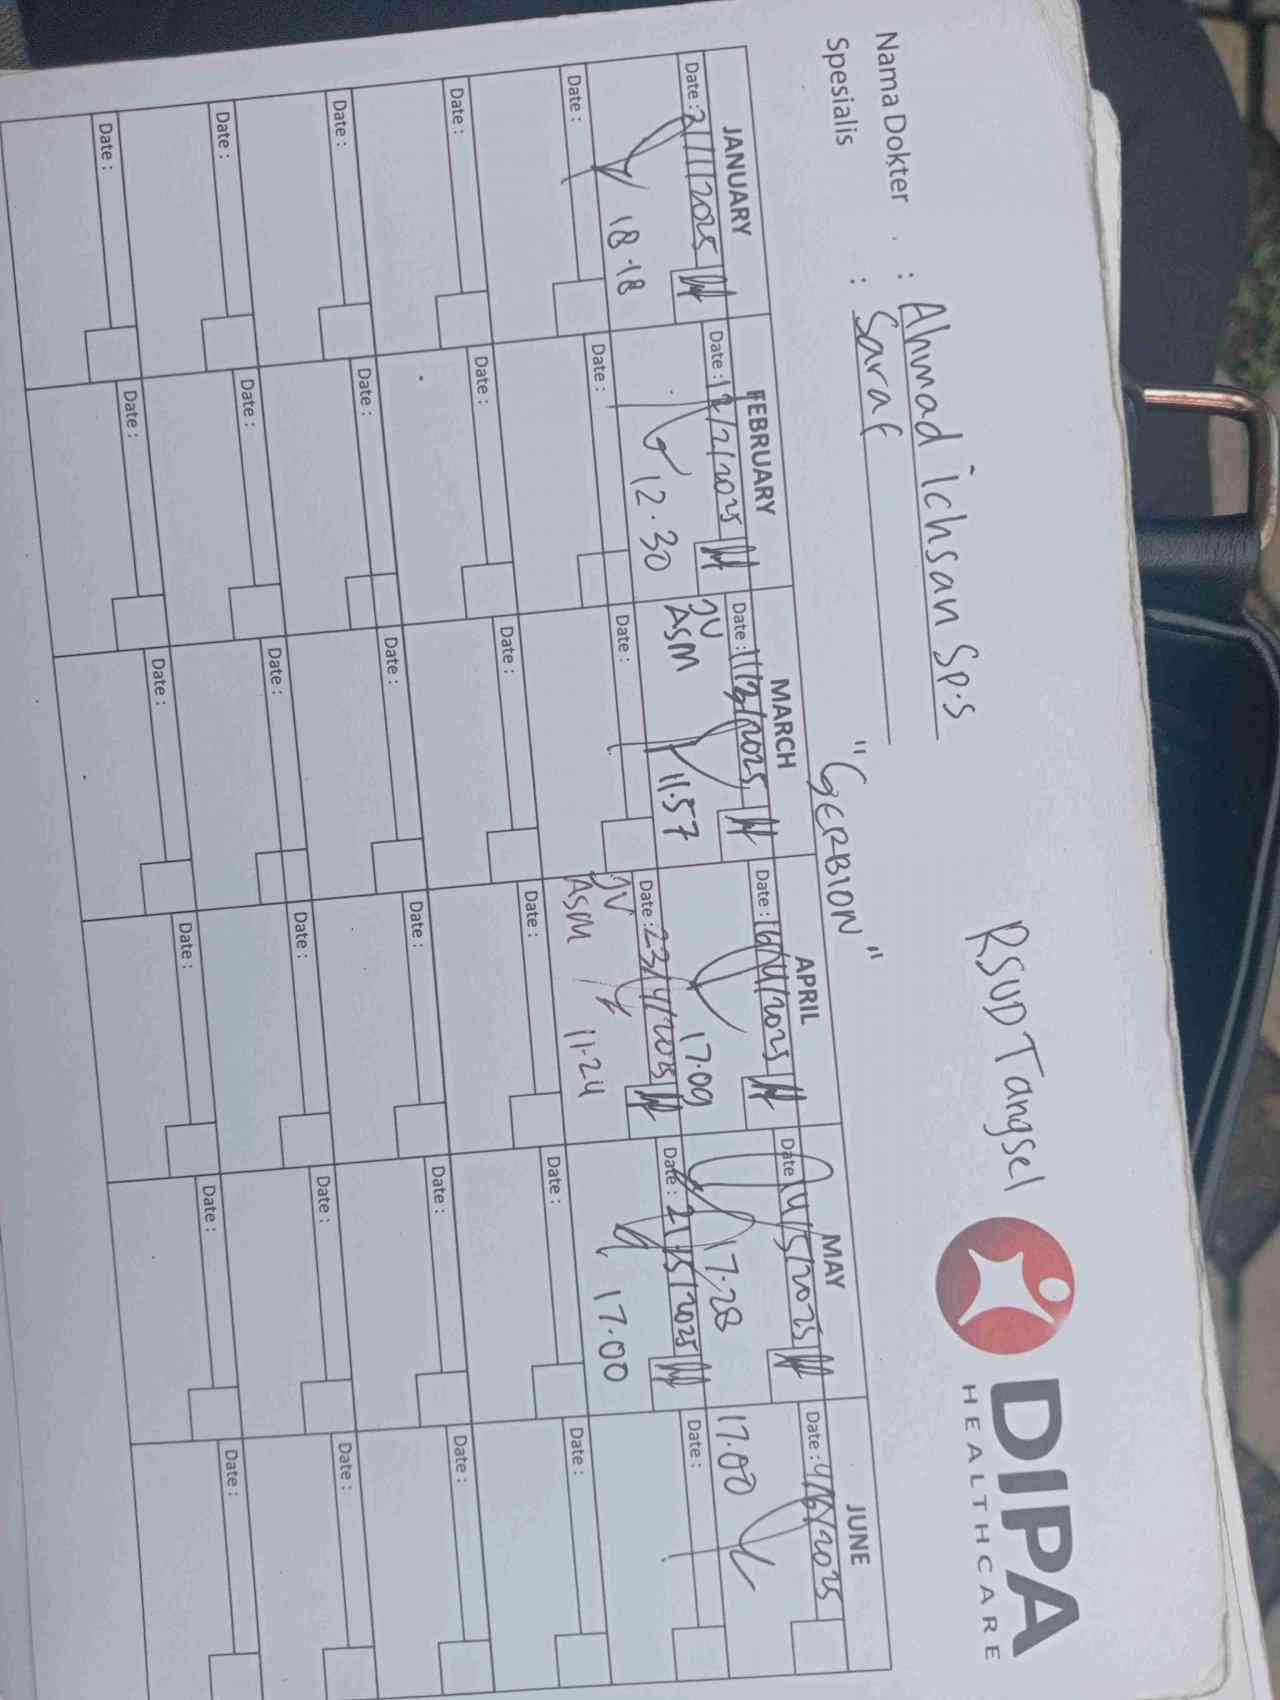 RSUD Tangsel
DIPA
HEALTHCARE
Nama Dokter : Ahmad ichsan Sp.S
Spesialis : Saraf
"GERBION"
JANUARY FEBRUARY MARCH APRIL MAY JUNE
Date : 2/1/2025 Date : 12/2/2025 Date : 11/3/2025 Date : 16/4/2025 Date 14/5/2025 Date : 4/6/2025
18.18 12.30 JV ASM 11.57 17.09 17.28 17.00
Date : Date : Date : Date : 23/4/2025 Date : 21/5/2025 Date :
JV ASM 11.24 17.00
Date : Date : Date : Date : Date : Date :
Date : Date : Date : Date : Date : Date :
Date : Date : Date : Date : Date : Date :
Date : Date : Date : Date : Date : Date :